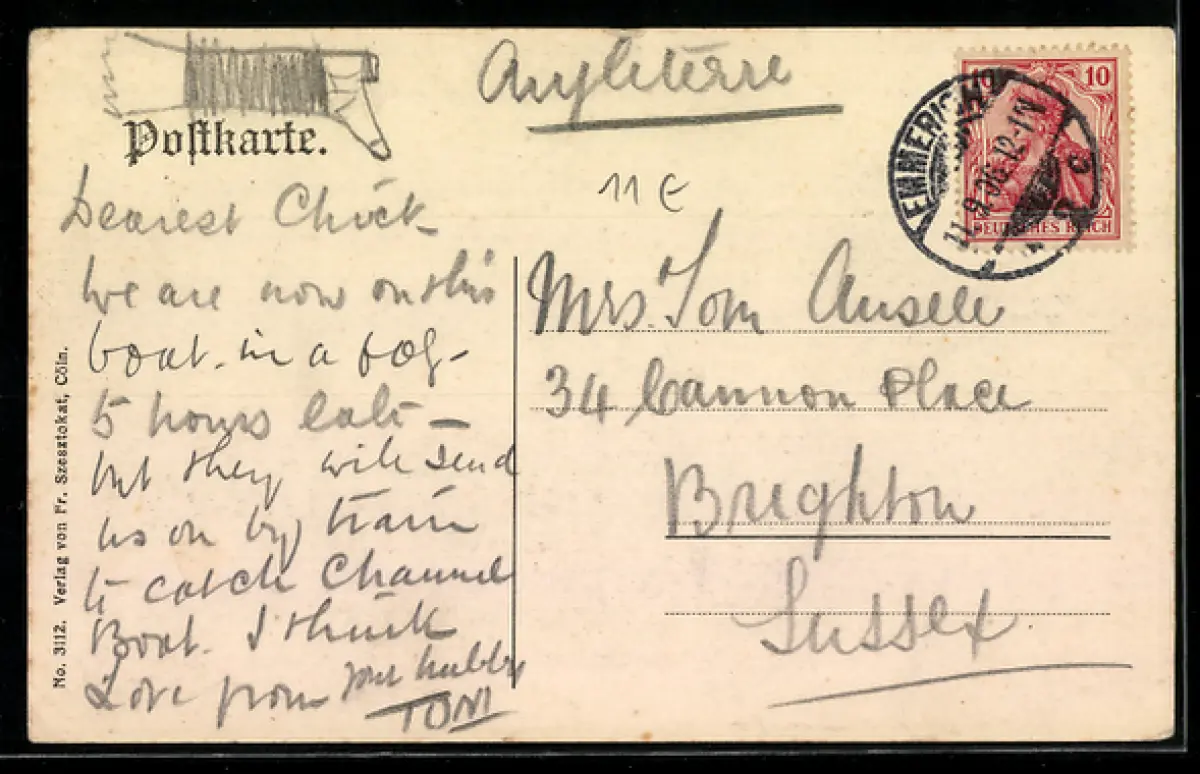 Angleterre
Postkarte.
10 10
DEUTSCHES REICH
EMMERICH
11.9.06.12-1N
11 €
Dearest Chick -
We are now on this
boat - in a fog -
5 hours late -
but they will send
us on by train
to catch Channel
Boat. I think
Love from your hubby
TOM
Mrs. Tom Ansell
34 Cannon Place
Brighton
Sussex
No. 3112. Verlag von Fr. Szesztokat, Cöln.